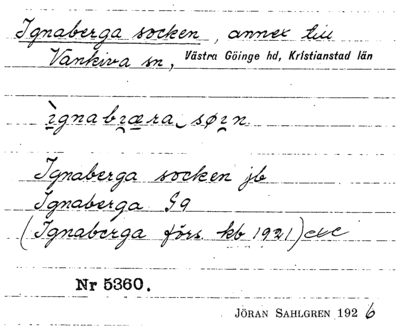 Ignaberga socken, annex till
Vankiva sn, Västra Göinge hd, Kristianstad län
ìgnabæra søɪn
Ignaberga socken jb
Ignaberga Gg
(Ignaberga förs. kb 1921) etc
Nr 5360.
JÖRAN SAHLGREN 1926